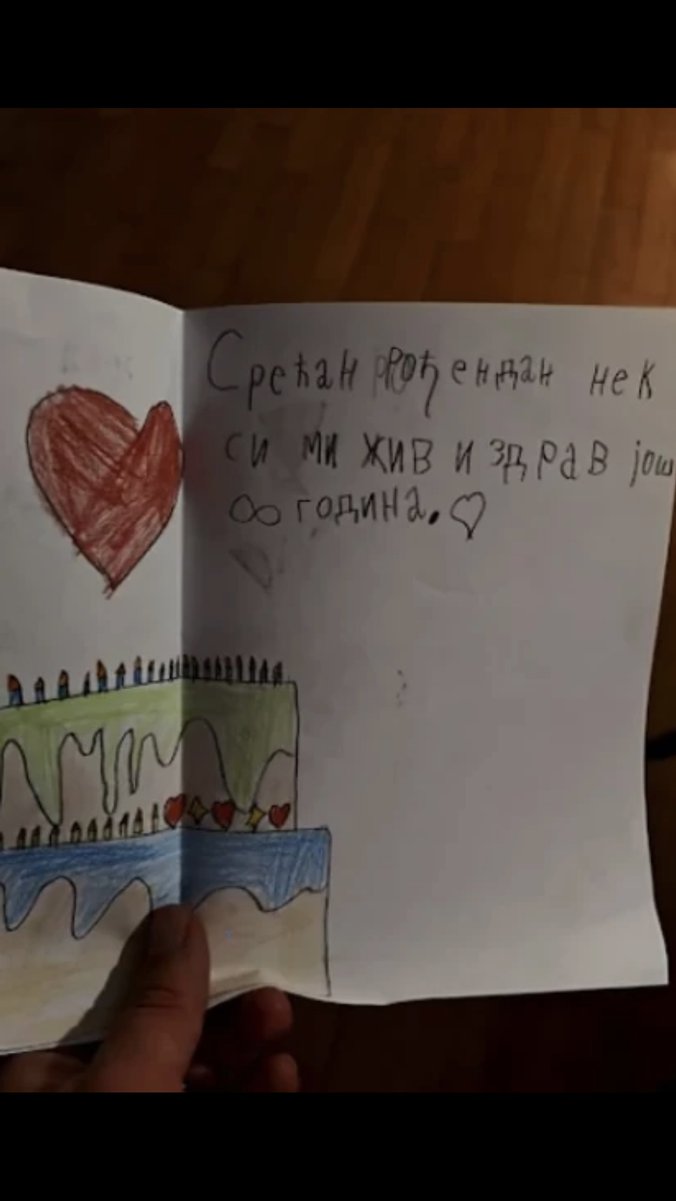 Срећан рођендан нек
си ми жив и здрав још
∞ година. ♡